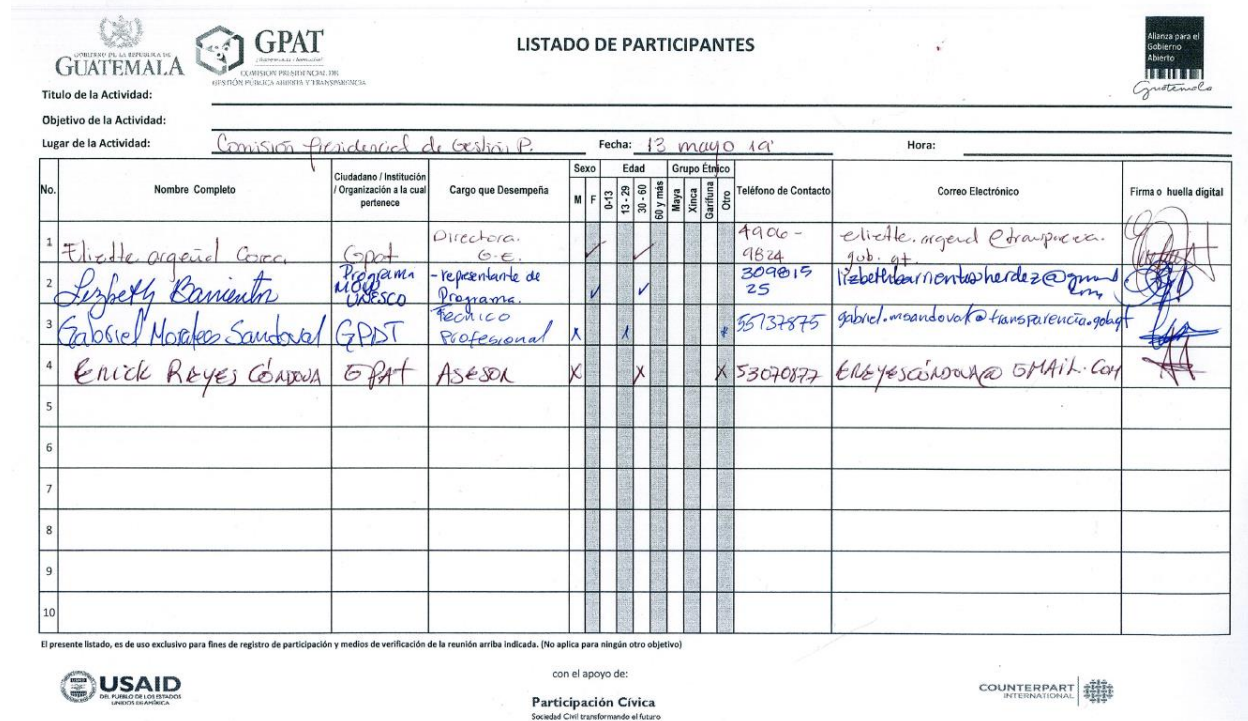 GOBIERNO DE LA REPÚBLICA DE
GUATEMALA
GPAT
COMISIÓN PRESIDENCIAL DE
GESTIÓN PÚBLICA ABIERTA Y TRANSPARENCIA
LISTADO DE PARTICIPANTES
Alianza para el
Gobierno
Abierto
Guatemala
Titulo de la Actividad:
Objetivo de la Actividad:
Lugar de la Actividad: Comisión Presidencial de Gestión P. Fecha: 13 mayo 19 Hora:
No. Nombre Completo Ciudadano / Institución / Organización a la cual pertenece Cargo que Desempeña Sexo M F Edad 0-13 13 - 29 30 - 60 60 y más Grupo Étnico Maya Xinca Garifuna Otro Teléfono de Contacto Correo Electrónico Firma o huella digital
1 Gpat Directora. G.E. 4906-9824 gob.gt.
2 Lizbeth Barrientos Programa MOW UNESCO - representante de Programa. 30981525
3 Gabriel Morales Sandoval GPAT Técnico Profesional x x 55737875 gabriel.msandoval@transparencia.gob.gt
4 Erick Reyes Córdova GPAT ASESOR X X X 53070877 EREYESCÓRDOVA@GMAIL.COM
5
6
7
8
9
10
El presente listado, es de uso exclusivo para fines de registro de participación y medios de verificación de la reunión arriba indicada. (No aplica para ningún otro objetivo)
USAID
DEL PUEBLO DE LOS ESTADOS
UNIDOS DE AMÉRICA
con el apoyo de:
Participación Cívica
Sociedad Civil transformando el futuro
COUNTERPART
INTERNATIONAL